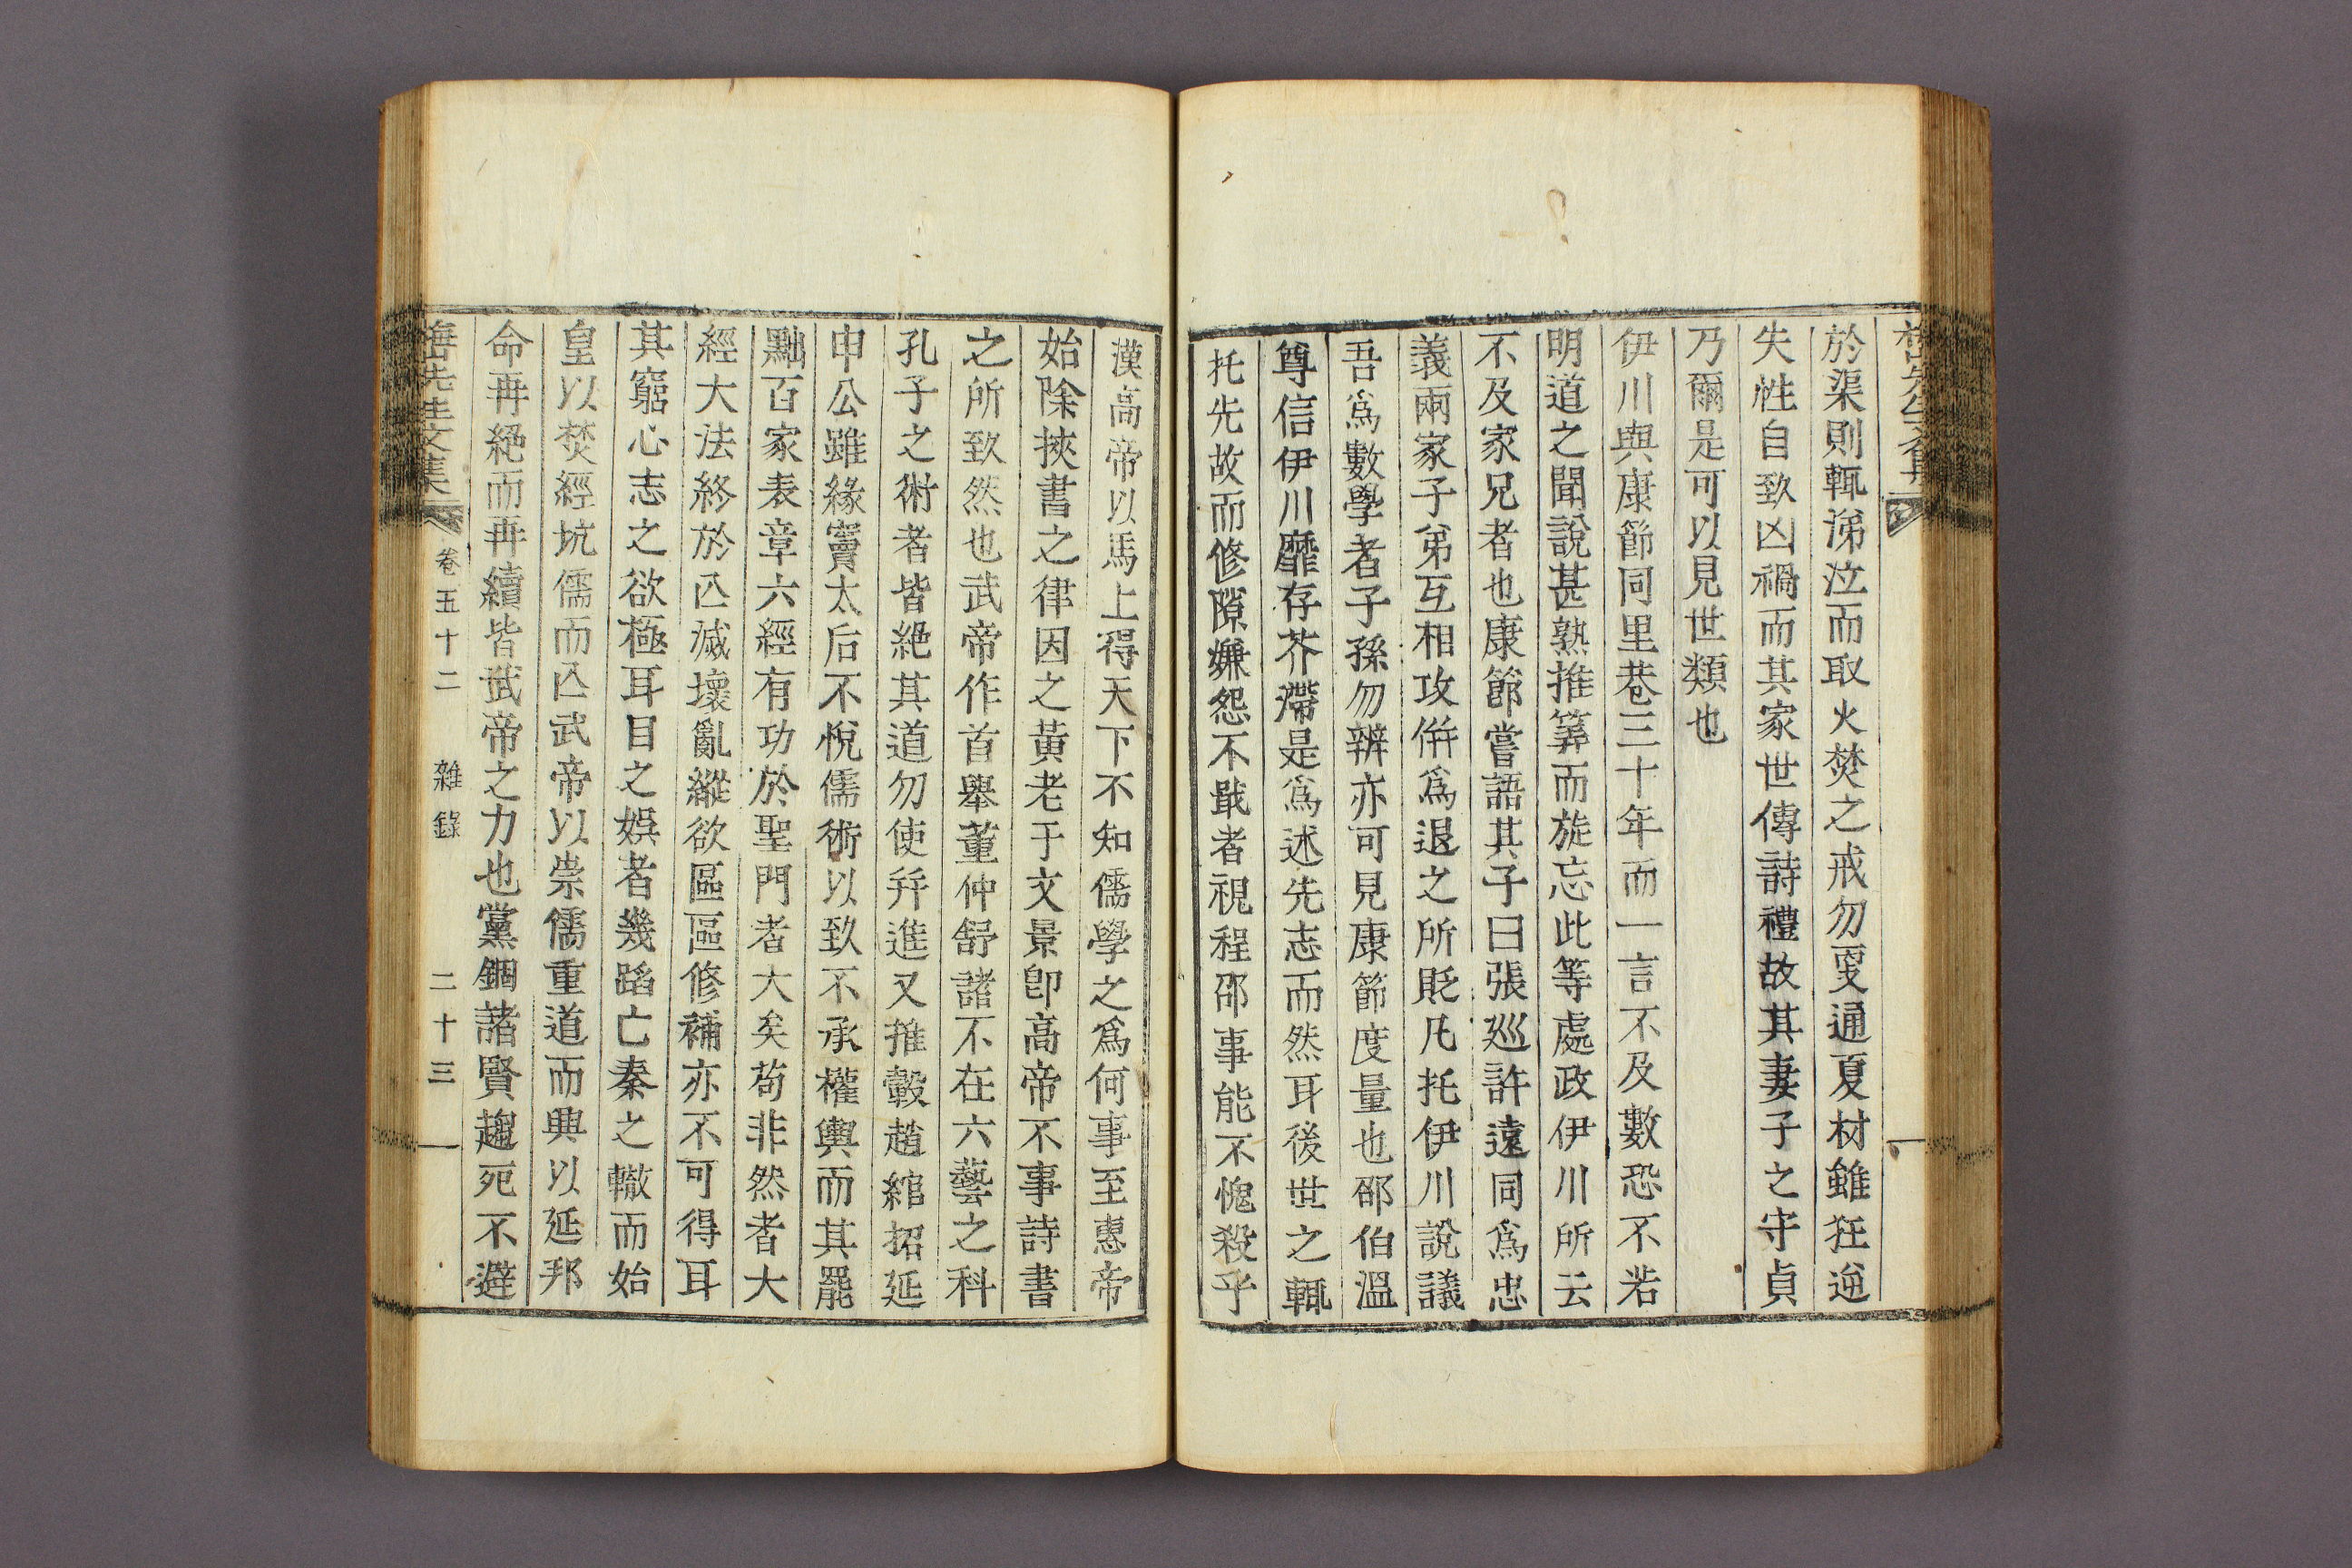 於渠則輒涕泣而取火焚之戒勿更通夏材雖狂逆
失性自致凶禍而其家世傳詩禮故其妻子之守貞
乃爾是可以見世類也
伊川與康節同里巷三十年而一言不及數恐不若
明道之聞說甚熟推筭而旋忘此等處政伊川所云
不及家兄者也康節嘗語其子曰張巡許遠同爲忠
義兩家子弟互相攻倂爲退之所貶凡托伊川說議
吾爲數學者子孫勿辨亦可見康節度量也邵伯溫
尊信伊川靡存芥滯是爲述先志而然耳後世之輒
托先故而修隙嫌怨不戢者視程邵事能不愧殺乎
漢高帝以馬上得天下不知儒學之爲何事至惠帝
始除挾書之律因之黃老于文景卽高帝不事詩書
之所致然也武帝作首擧董仲舒諸不在六藝之科
孔子之術者皆絶其道勿使幷進又推轂趙綰招延
申公雖緣竇太后不悅儒術以致不承權輿而其罷
黜百家表章六經有功於聖門者大矣苟非然者大
經大法終於亾滅壞亂縱欲區區修補亦不可得耳
其窮心志之欲極耳目之娛者幾蹈亡秦之轍而始
皇以焚經坑儒而亾武帝以崇儒重道而興以延邦
命再絶而再續皆武帝之力也黨錮諸賢趨死不避
先生文集 卷五十二 雜錄 二十三